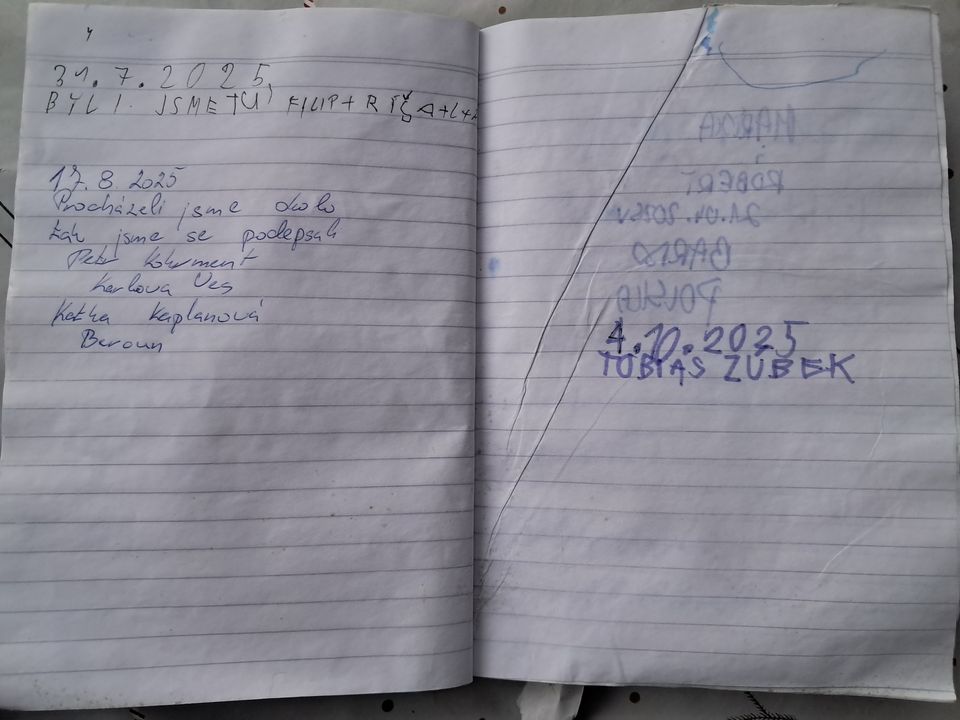 31.7.2025,
BYLI JSME TU FILIP + RÍŽA + L +
17.8.2025
Procházeli jsme okolo
tak jsme se podepsali
Petr
Karlova Ves
Katka Kaplanová
Beroun
MARTA
i
ROBERT
21.04.2025r
BARDO
POLSKA
4.10.2025
TOBIAS ZUBEK